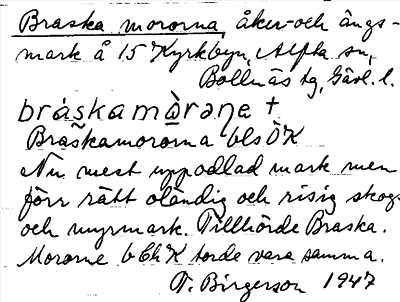 Braska mororna, åker- och ängs-
mark å 15 Kyrkbyn, Alfta sn,
Bollnäs tg, Gävl. l.
bráskamàrəɳe +
Braskamororna bls ÖK
Nu mest uppodlad mark men
förr rätt oländig och risig skogs
och myrmark. Tillhörde Braska.
Mororne b Ch K torde vara samma.
T. Birgerson 1947